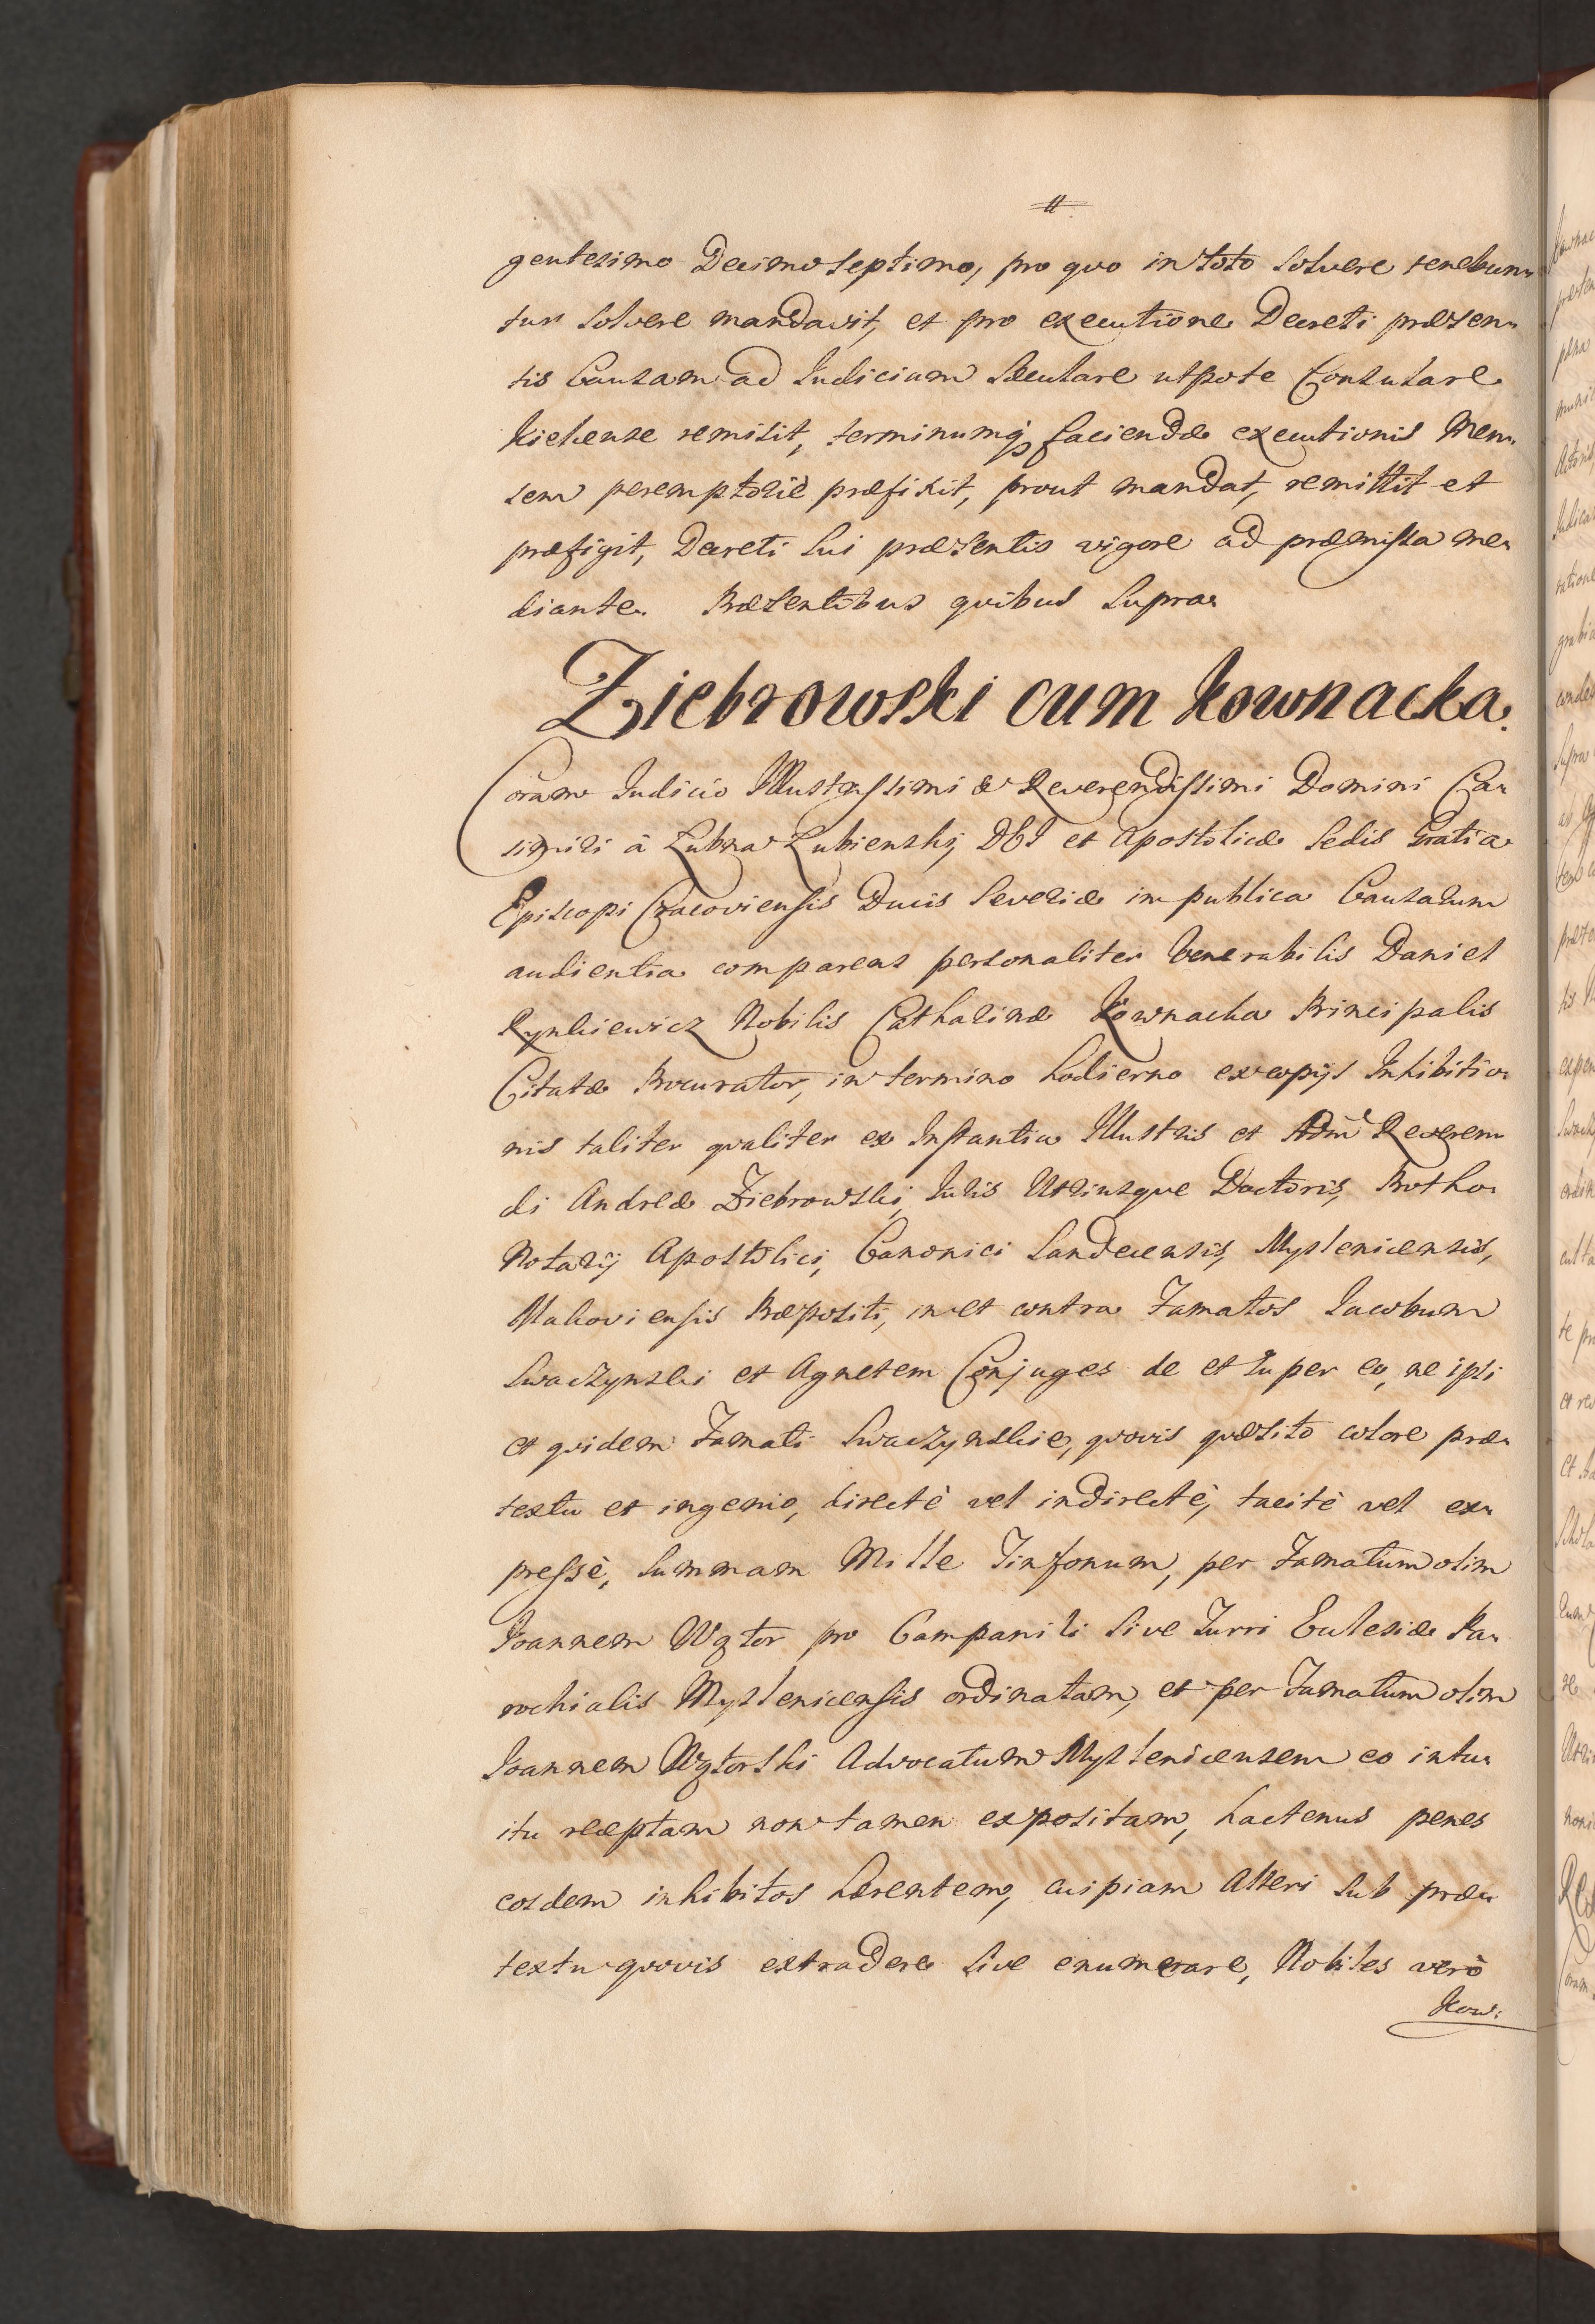 #
gentesimo Decimo Septimo, pro quo in toto Solvere tenebun-
tur Solvere mandavit, et pro executione Decreti præsen-
tis Causam ad Iudicium Sæculare utpote Consulare
Kielcense remisit, terminumq; faciendæ executionis Men-
sem peremptoriè præfixit, prout mandat, remittit et
præfigit, Decreti Sui præsentis vigore ad præmissa me-
diante. Præsentibus quibus Supra.
Ziebrowski cum Kownacka.
Coram Iudicio Illustrissimi & Reverendissimi Domini Ca-
simiri à Łubna Łubienski, DEI et Apostolicæ Sedis Gratia
Episcopi Cracoviensis Ducis Severiæ in publica Causarum
audientia comparens personaliter Venerabilis Daniel
Rynkiewicz Nobilis Catharinæ Kownacka Principalis
Citatæ Procurator, in termino hodierno ex copijs Inhibitio-
nis taliter qualiter ex Instantia Illustris et Admd Reveren-
di Andreæ Ziebrowski, Iuris Utriusque Doctoris, Protho-
Notarij Apostolici, Canonici Sandecensis, Myslenicensis,
Makoviensis Præpositi, in et contra Famatos Iacobum
Swaczynski et Agnetem Conjuges de et Super eo, ne ipsi
et quidem Famati Swaczynskie, quovis quæsito colore præ-
textu et ingenio, directè vel indirectè, tacitè vel ex-
pressè, Summam Mille Tinfonum, per Famatum olim
Joannem Wątor pro Campanili Sive Turri Ecclesiæ Pa-
rochialis Myslenicensis ordinatam, et per Famatum olim
Joannem Wątorski Advocatum Myslenicensem eo intu-
itu receptam non tamen expositam, hactenus penes
eosdem inhibitos hærentem, cuipiam Alteri Sub præ-
textu quovis extradere Sive enumerare, Nobiles verò
Kow: